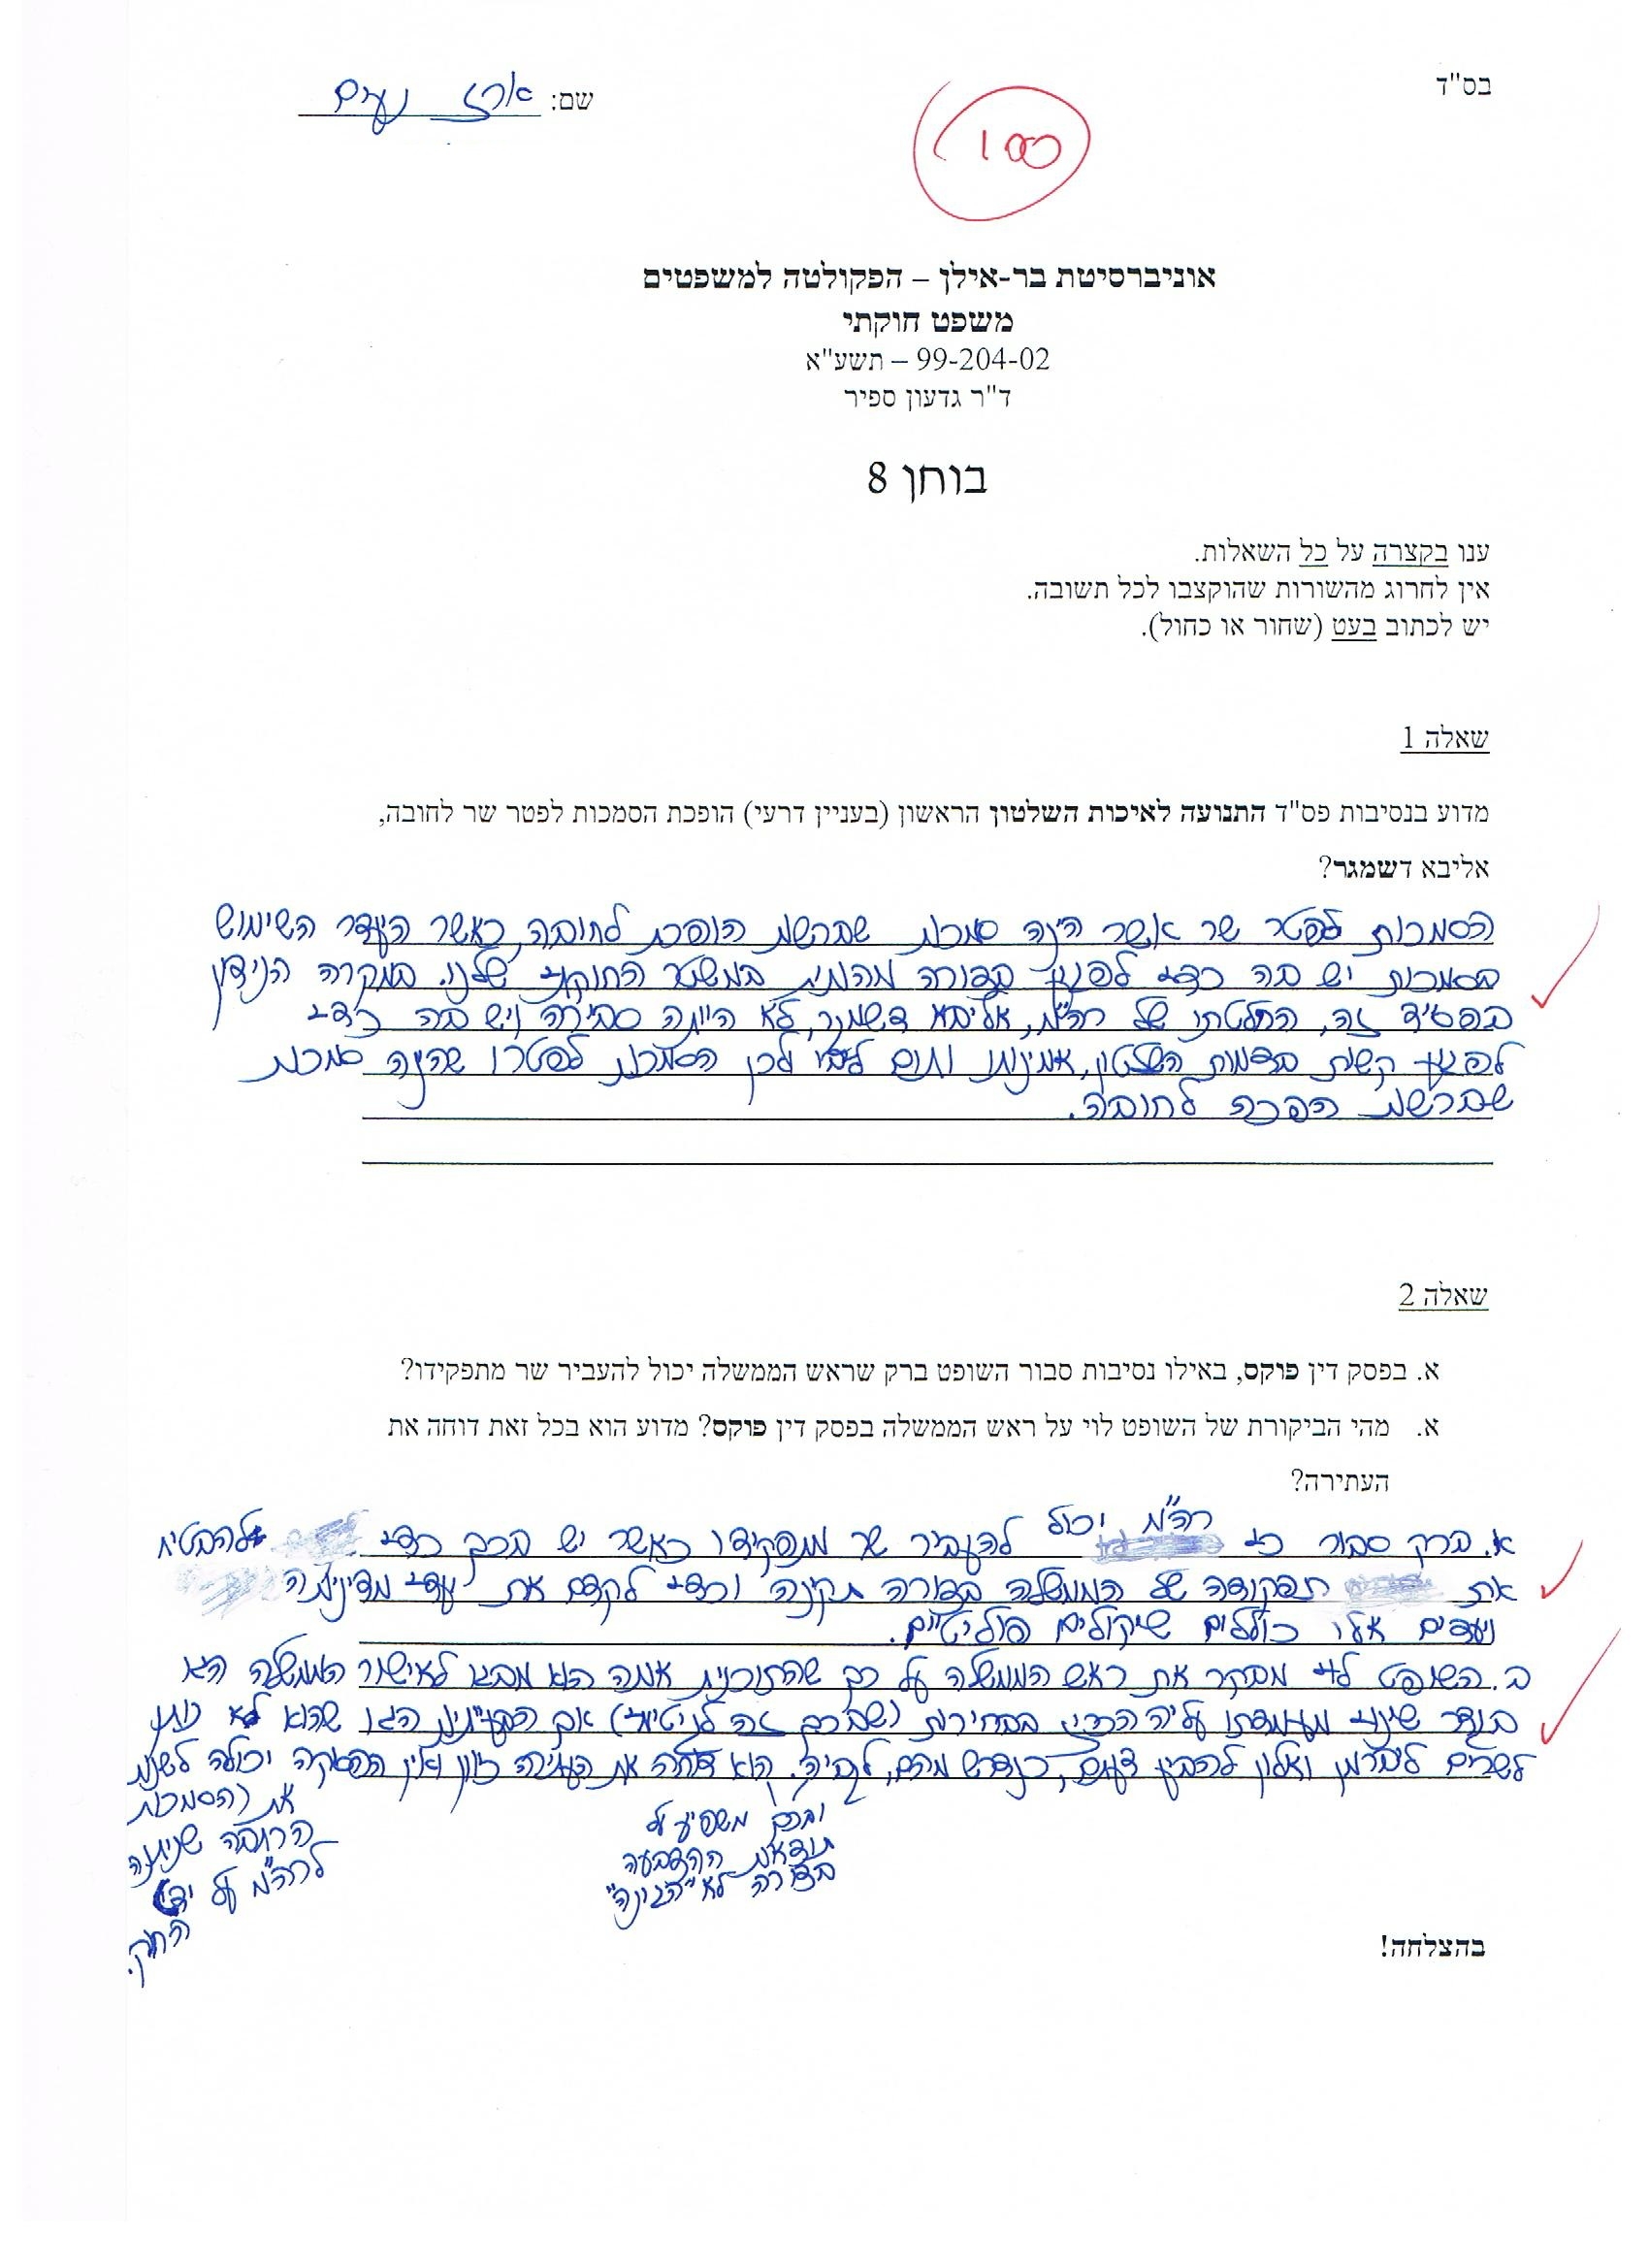 בס"ד
שם: ארז נעים
100
אוניברסיטת בר-אילן – הפקולטה למשפטים
משפט חוקתי
99-204-02 – תשע"א
ד"ר גדעון ספיר
בוחן 8
ענו בקצרה על כל השאלות.
אין לחרוג מהשורות שהוקצבו לכל תשובה.
יש לכתוב בעט (שחור או כחול).
שאלה 1
מדוע בנסיבות פס"ד התנועה לאיכות השלטון הראשון (בעניין דרעי) הופכת הסמכות לפטר שר לחובה,
אליבא דשמגר?
הסמכות לפטר שר אשר הינה סמכות שברשות הופכת לחובה, כאשר היעדר השימוש
בסמכות יש בה כדי לפגוע בצורה מהותית במשטר החוקתי שלנו. במקרה הנידון
בפס"ד זה, החלטתו של רה"מ, אליבא דשמגר, לא הייתה סבירה ויש בה כדי
לפגוע קשות בדמות השלטון, אמינותו ותום ליבו ולכן הסמכות לפטרו שהינה סמכות
שברשות הפכה לחובה.
שאלה 2
א. בפסק דין פוקס, באילו נסיבות סבור השופט ברק שראש הממשלה יכול להעביר שר מתפקידו?
א. מהי הביקורת של השופט לוי על ראש הממשלה בפסק דין פוקס? מדוע הוא בכל זאת דוחה את
העתירה?
א. ברק סבור כי רה"מ יכול להעביר שר מתפקידו כאשר יש בכך כדי להבטיח
את תפקודה של הממשלה בצורה תקינה וכדי לקדם את יעדי מדיניותה
ויעדים אלו כוללים שיקולים פוליטיים.
ב. השופט לוי מבקר את ראש הממשלה על כך שהתוכנית אותה הוא מביא לאישור הממשלה היא
בגדר שינוי מעמדתו עליה הכריז בבחירות (שבכך זה לגיטימי) אך הבעייתיות היא שהוא לא נותן
לשרים ליברמן ואלון להביע דעתם, כנדרש מהם, לגביה. הוא דוחה את העתירה כיוון ואין הפסיקה יכולה לשנות
ובכך משפיע על
תוצאות ההצבעה
בצורה לא "הגונה"
את הסמכות
הרחבה שניתנה
לרה"מ על ידי
החוק.
בהצלחה!